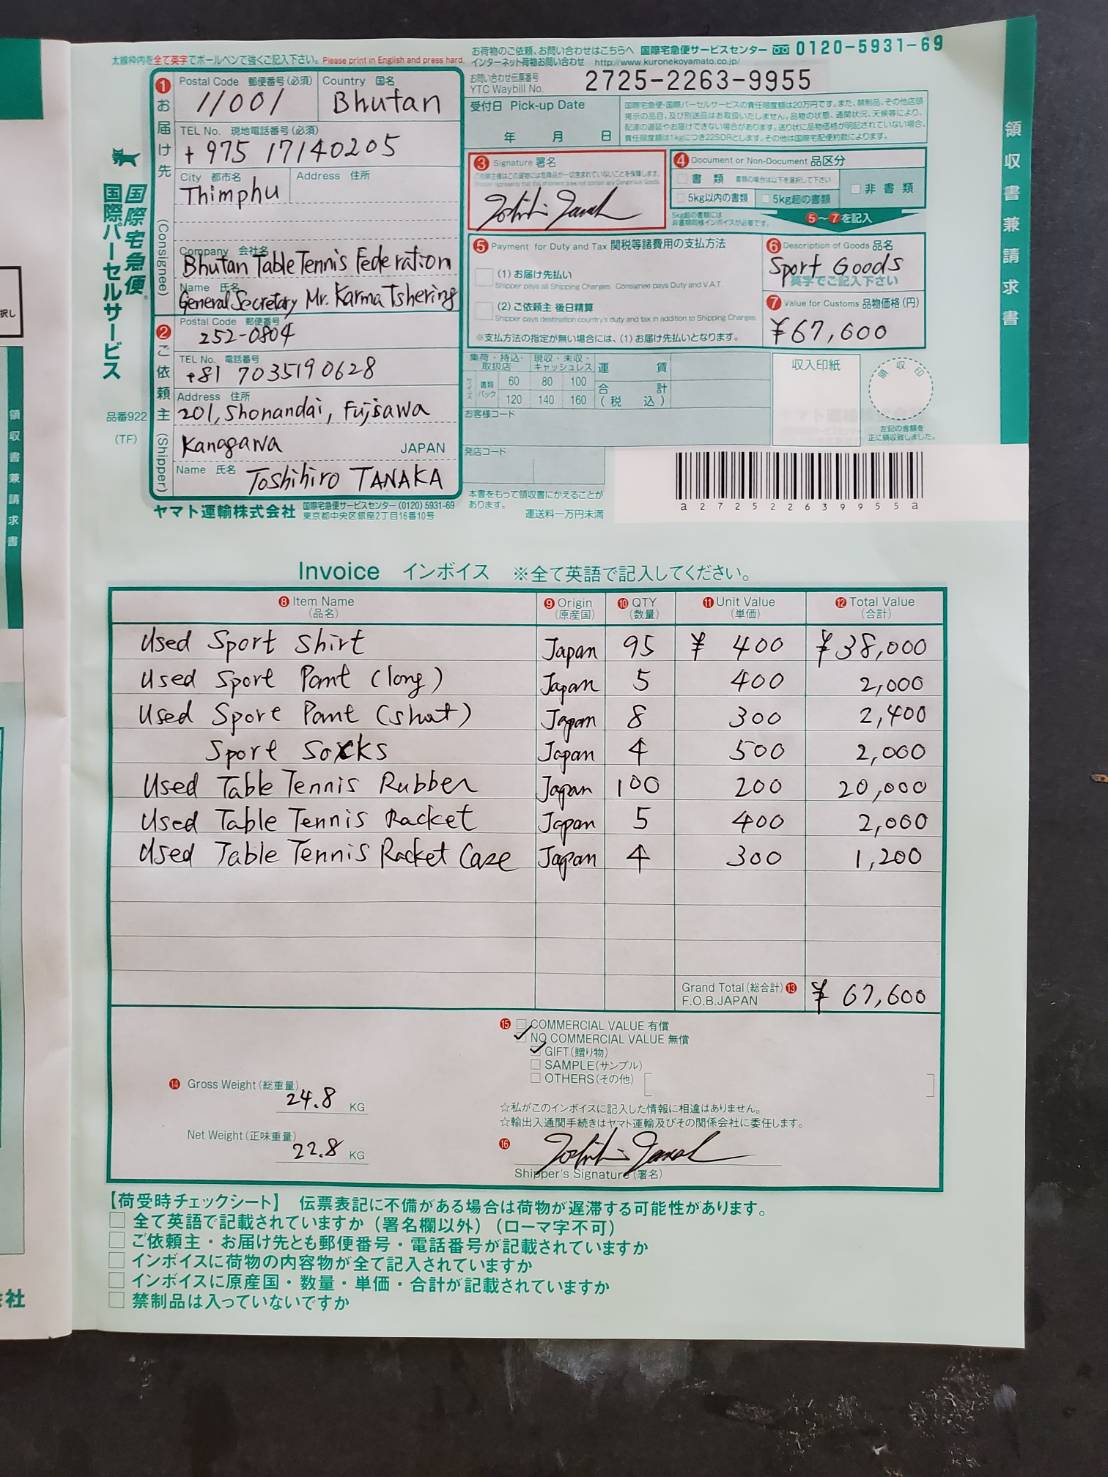 太線枠内を全て英字でボールペンで強くご記入下さい。Please print in English and press hard.
お荷物のご依頼、お問い合わせはこちらへ 国際宅急便サービスセンター 0120-5931-69
インターネット荷物お問い合わせ http://www.kuronekoyamato.co.jp/
お問い合わせ伝票番号
YTC Waybill No. 2725-2263-9955
受付日 Pick-up Date
年 月 日
領収書兼請求書
国際宅急便
国際パーセルサービス
品番922
(TF)
1 お届け先 (Consignee)
Postal Code 郵便番号(必須) Country 国名
11001 Bhutan
TEL No. 現地電話番号(必須)
+975 17140205
City 都市名 Address 住所
Thimphu
Company 会社名
Bhutan Table Tennis Federation
Name 氏名
General Secretary Mr. Karma Tshering
2 ご依頼主 (Shipper)
Postal Code 郵便番号
252-0804
TEL No. 電話番号
+81 7035190628
Address 住所
201, Shonandai, Fujisawa
Kanagawa JAPAN
Name 氏名 Toshihiro TANAKA
ヤマト運輸株式会社 国際宅急便サービスセンター (0120) 5931-69
東京都中央区銀座2丁目16番10号
3 Signature 署名
4 Document or Non-Document 品区分
書類 書類の場合は以下を選択して下さい
非書類
5kg以内の書類 5kg超の書類
5~7を記入
5 Payment for Duty and Tax 関税等諸費用の支払方法
(1) お届け先払い
Shipper pays all Shipping Charges. Consignee pays Duty and V.A.T.
(2) ご依頼主 後日精算
Shipper pays destination country's duty and tax in addition to Shipping Charges.
※支払方法の指定が無い場合には、(1) お届け先払いとなります。
6 Description of Goods 品名
Sport Goods
英字でご記入下さい
7 Value for Customs 品物価格(円)
¥67,600
集荷・持込・取扱店 現収・未収・キャッシュレス 運賃
サイズ 書類パック 60 80 100 合計
120 140 160 (税込)
お客様コード
発店コード
収入印紙
領収印
左記の金額を
正に領収致しました。
本書をもって領収書にかえることが
あります。 運送料一万円未満
a272522639955a
Invoice インボイス ※全て英語で記入してください。
8 Item Name (品名) 9 Origin (原産国) 10 QTY (数量) 11 Unit Value (単価) 12 Total Value (合計)
Used Sport Shirt Japan 95 ¥ 400 ¥38,000
Used Sport Pant (long) Japan 5 400 2,000
Used Spore Pant (shat) Japan 8 300 2,400
Sport Socks Japan 4 500 2,000
Used Table Tennis Rubber Japan 100 200 20,000
Used Table Tennis Racket Japan 5 400 2,000
Used Table Tennis Racket Case Japan 4 300 1,200
Grand Total (総合計) 13
F.O.B.JAPAN ¥ 67,600
15 COMMERCIAL VALUE 有償
NO COMMERCIAL VALUE 無償
GIFT(贈り物)
SAMPLE(サンプル)
OTHERS(その他)
14 Gross Weight (総重量)
24.8 KG
Net Weight (正味重量)
22.8 KG
☆私がこのインボイスに記入した情報に相違はありません。
☆輸出入通関手続きはヤマト運輸及びその関係会社に委任します。
16
Shipper's Signature (署名)
【荷受時チェックシート】 伝票表記に不備がある場合は荷物が遅滞する可能性があります。
全て英語で記載されていますか(署名欄以外)(ローマ字不可)
ご依頼主・お届け先とも郵便番号・電話番号が記載されていますか
インボイスに荷物の内容物が全て記入されていますか
インボイスに原産国・数量・単価・合計が記載されていますか
禁制品は入っていないですか
領収書兼請求書